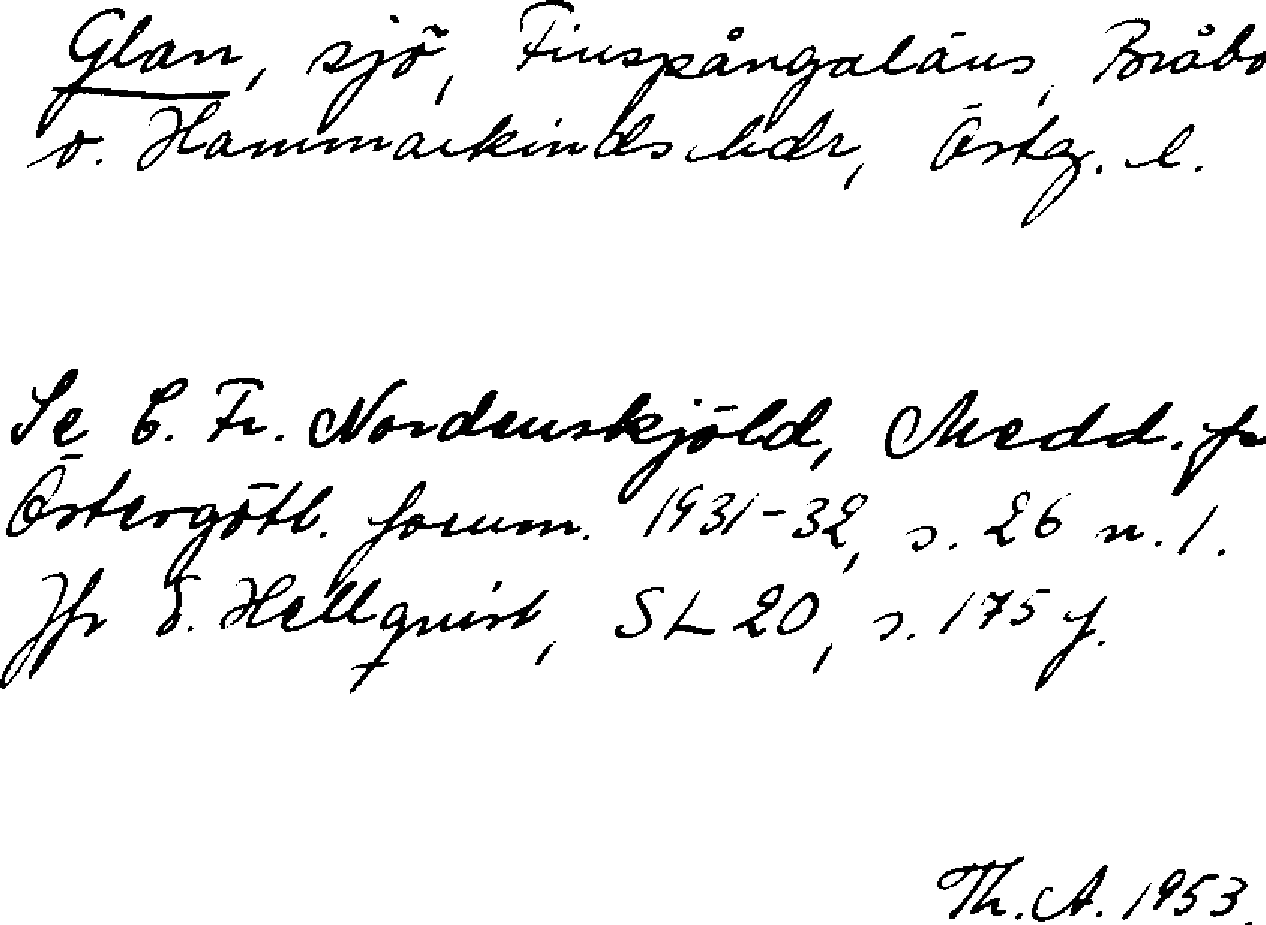 Glan, sjö, Finspångaläns, Bråbo
o. Hammarkinds hdr, Östg. l.
Se C. Fr. Nordenskjöld, Medd. fr
Östergötl. fornm. 1931-32, s. 26 n. 1.
Jfr E. Hellquist, SL 20, s. 175 f.
Th. A. 1953.